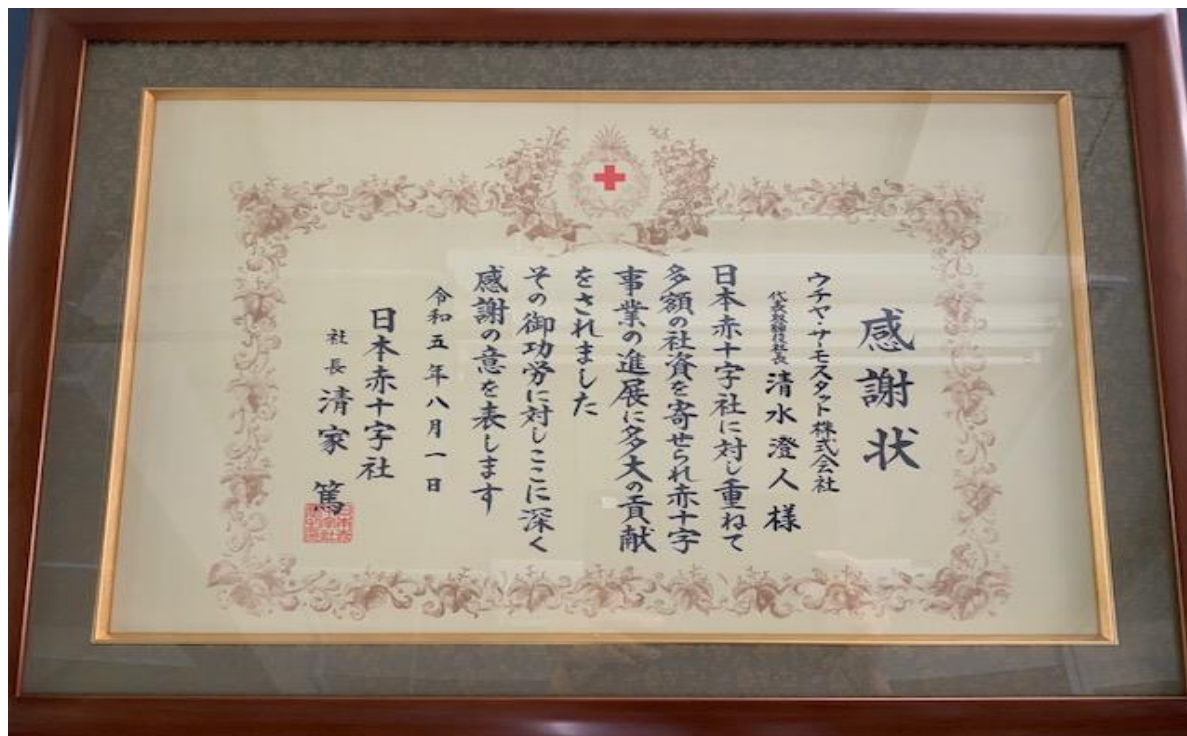 感謝状
ウチヤ・サーモスタット株式会社
代表取締役社長 清水澄人様
日本赤十字社に対し重ねて
多額の社資を寄せられ赤十字
事業の進展に多大の貢献
をされました
その御功労に対しここに深く
感謝の意を表します
令和五年八月一日
日本赤十字社
社長 清家篤